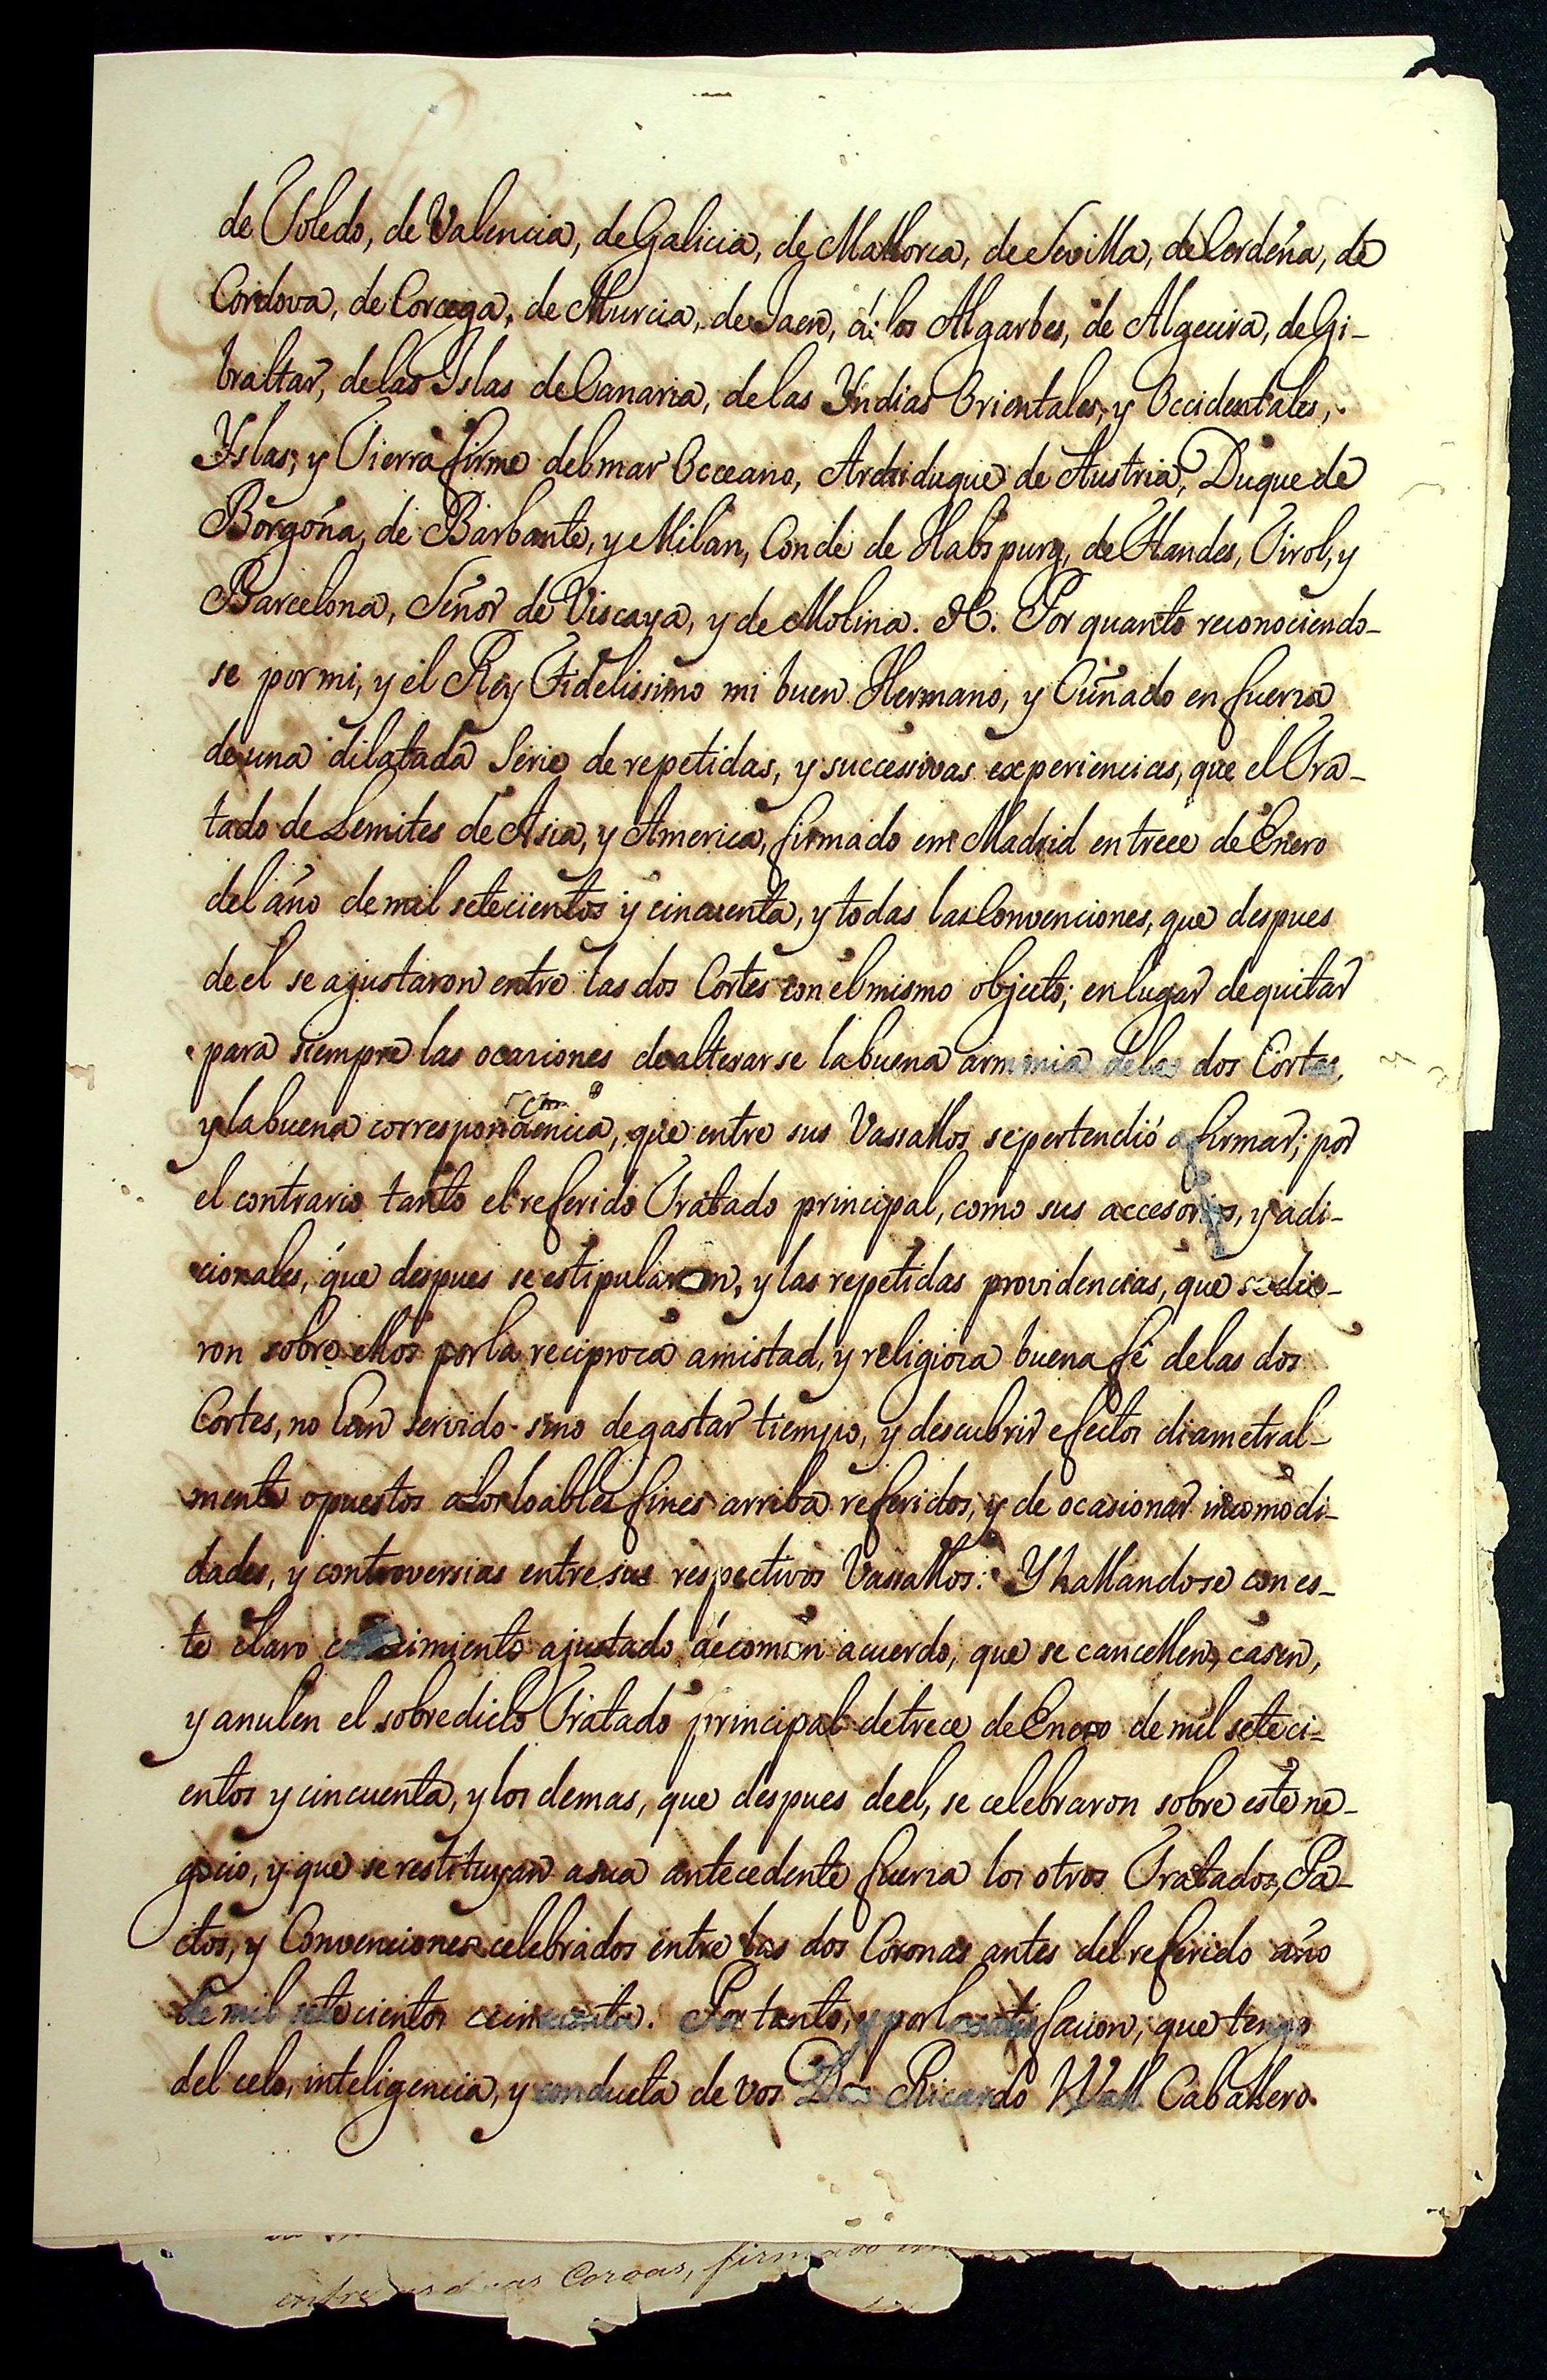 de Toledo, de Valencia, de Galicia, de Mallorca, de Sevilla, de Cerdeña, de
Cordova, de Corcega, de Murcia, de Jaen, de los Algarbes, de Algecira, de Gi-
braltar, de las Islas de Canaria, de las Yndias Orientales, y Occidentales,
Yslas, y Tierra firme del mar Occeano, Archiduque de Austria, Duque de
Borgoña, de Barbante, y Milan, Conde de Habspurg, de Flandes, Tirol, y
Barcelona, Señor de Viscaya, y de Molina. &. Por quanto reconociendo-
se por mi, y el Rey Fidelissimo mi buen Hermano, y Cuñado en fuerza
de una dilatada serie de repetidas, y successivas experiencias, que el Tra-
tado de Lemites de Asia, y America, firmado em Madrid en trece de Enero
del año de mil setecientos y cincuenta, y todas las Convenciones, que despues
de el se ajustaron entre las dos Cortes con el mismo objecto; en lugar de quitar
para siempre las ocasiones de alterarse la buena armonia de las dos Cortes,
y la buena correspondencia, que entre sus Vassallos se pertendió afirmar; por
el contrario tanto el referido Tratado principal, como sus accesorios, y adi-
cionales, que despues se estipularon, y las repetidas providencias, que se die-
ron sobre ellos por la reciproca amistad, y religiosa buena fé de las dos
Cortes, no han servido sino de gastar tiempo, y descubrir efectos diametral-
mente opuestos a los loables fines arriba referidos, y de ocasionar incomodi-
dades, y controversias entre sus respectivos Vassallos: Y hallandose con es-
te claro conocimiento ajustado de comun acuerdo, que se cancellen, casen,
y anulen el sobredicto Tratado principal de trece de Enero de mil seteci-
entos y cincuenta, y los demas, que despues de el, se celebraron sobre este ne-
gocio, y que se restituyan a sua antecedente fuerza los otros Tratados, Pa-
ctos, y Convenciones celebrados entre las dos Coronas antes del referido año
de mil setecientos cincuenta. Por tanto, y por la satisfacion, que tengo
del celo, inteligencia, y conducta de vos Don Ricardo Wall Caballero
entre as duas Coroas, firmado em